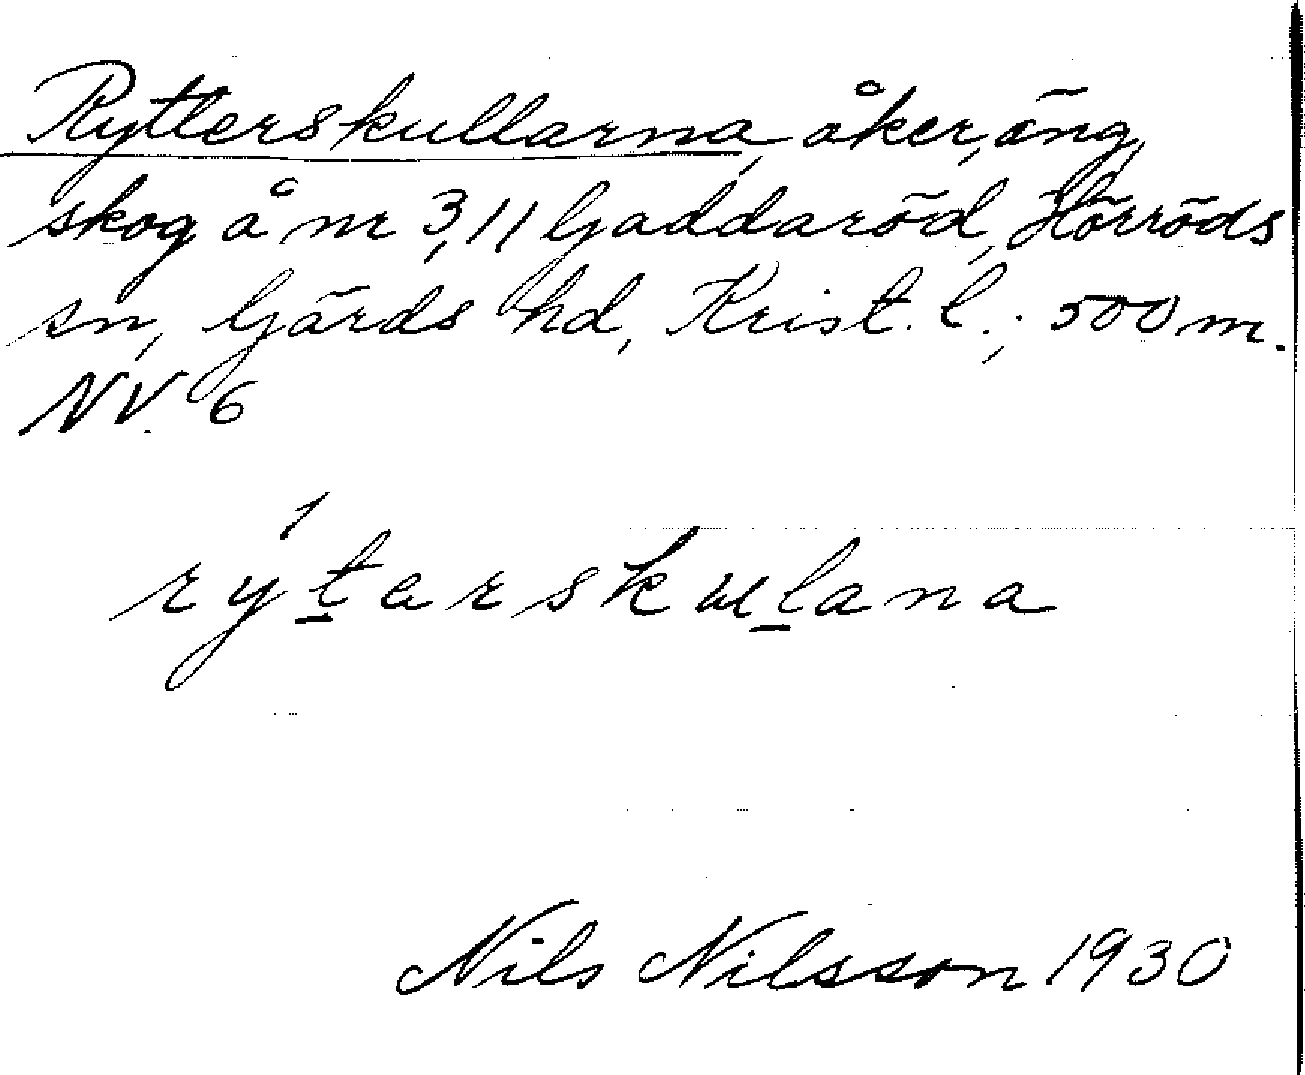 Rytterskullarna, åker, äng,
skog å nr 3,11 Gaddaröd, Hörröds
sn, Gärds hd, Krist. l.; 500 m.
NV. 6
rýtarskulana
Nils Nilsson 1930